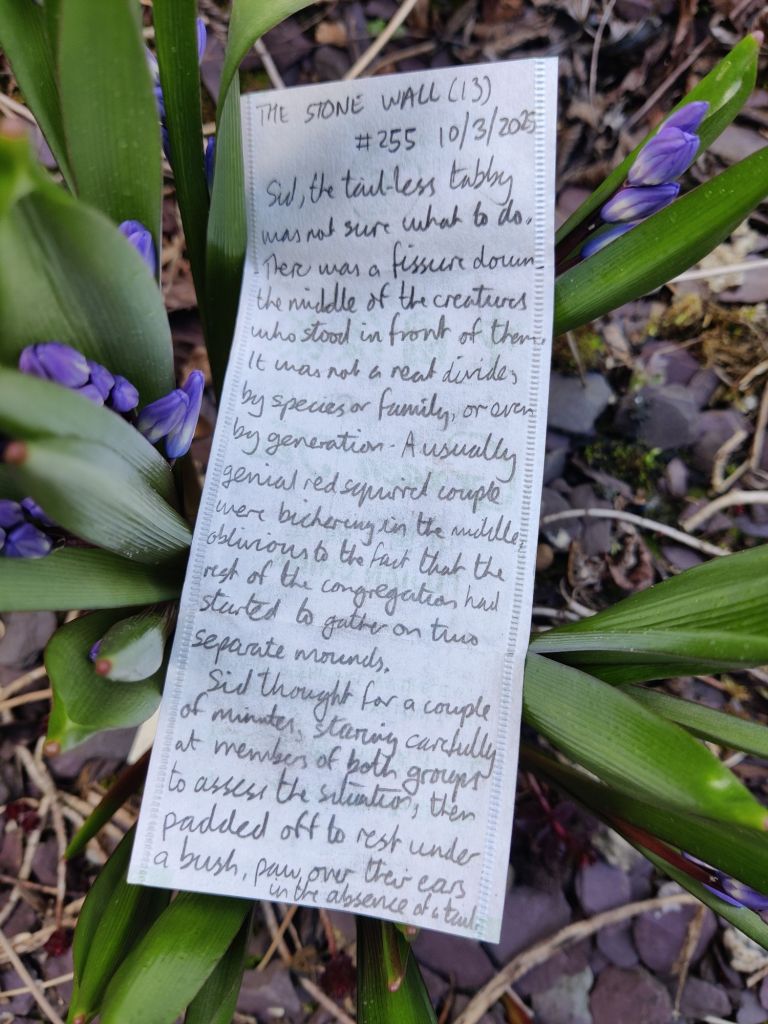 THE STONE WALL (13)
#255 10/3/2025
Sid, the tail-less tabby
was not sure what to do.
There was a fissure down
the middle of the creatures
who stood in front of them.
It was not a neat divide,
by species or family, or even
by generation. A usually
genial red squirrel couple
were bickering in the middle,
oblivious to the fact that the
rest of the congregation had
started to gather on two
separate mounds.
Sid thought for a couple
of minutes, staring carefully
at members of both groups
to assess the situation, then
padded off to rest under
a bush, paw over their ears
in the absence of a tail.